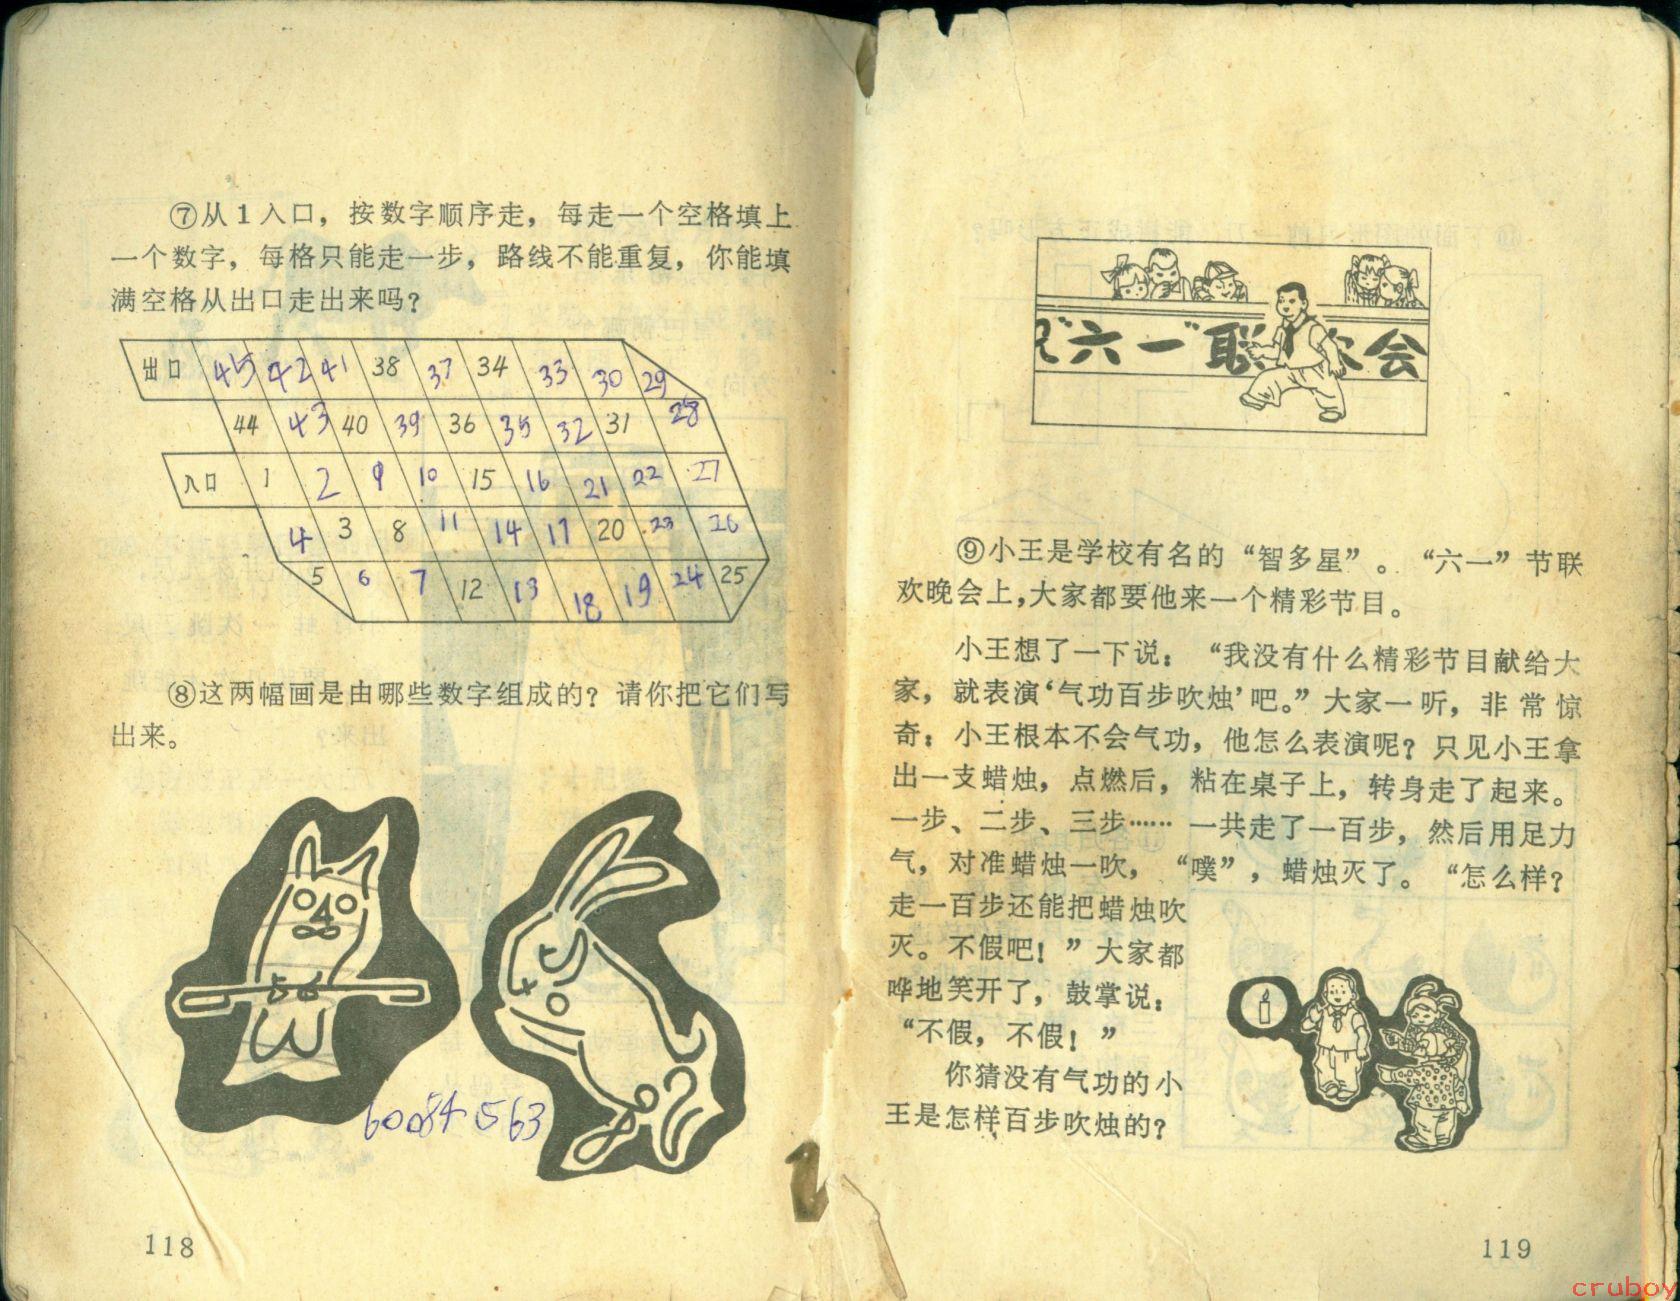 ⑦从1入口，按数字顺序走，每走一个空格填上
一个数字，每格只能走一步，路线不能重复，你能填
满空格从出口走出来吗？
出口 45 42 41 38 37 34 33 30 29
44 43 40 39 36 35 32 31 28
入口 1 2 9 10 15 16 21 22 27
4 3 8 11 14 17 20 23 26
5 6 7 12 13 18 19 24 25
⑧这两幅画是由哪些数字组成的？请你把它们写
出来。
118
“六一”联欢会
⑨小王是学校有名的“智多星”。“六一”节联
欢晚会上，大家都要他来一个精彩节目。
小王想了一下说：“我没有什么精彩节目献给大
家，就表演‘气功百步吹烛’吧。”大家一听，非常惊
奇：小王根本不会气功，他怎么表演呢？只见小王拿
出一支蜡烛，点燃后，粘在桌子上，转身走了起来。
一步、二步、三步……一共走了一百步，然后用足力
气，对准蜡烛一吹，“噗”，蜡烛灭了。“怎么样？
走一百步还能把蜡烛吹
灭。不假吧！”大家都
哗地笑开了，鼓掌说：
“不假，不假！”
你猜没有气功的小
王是怎样百步吹烛的？
119
cruboy